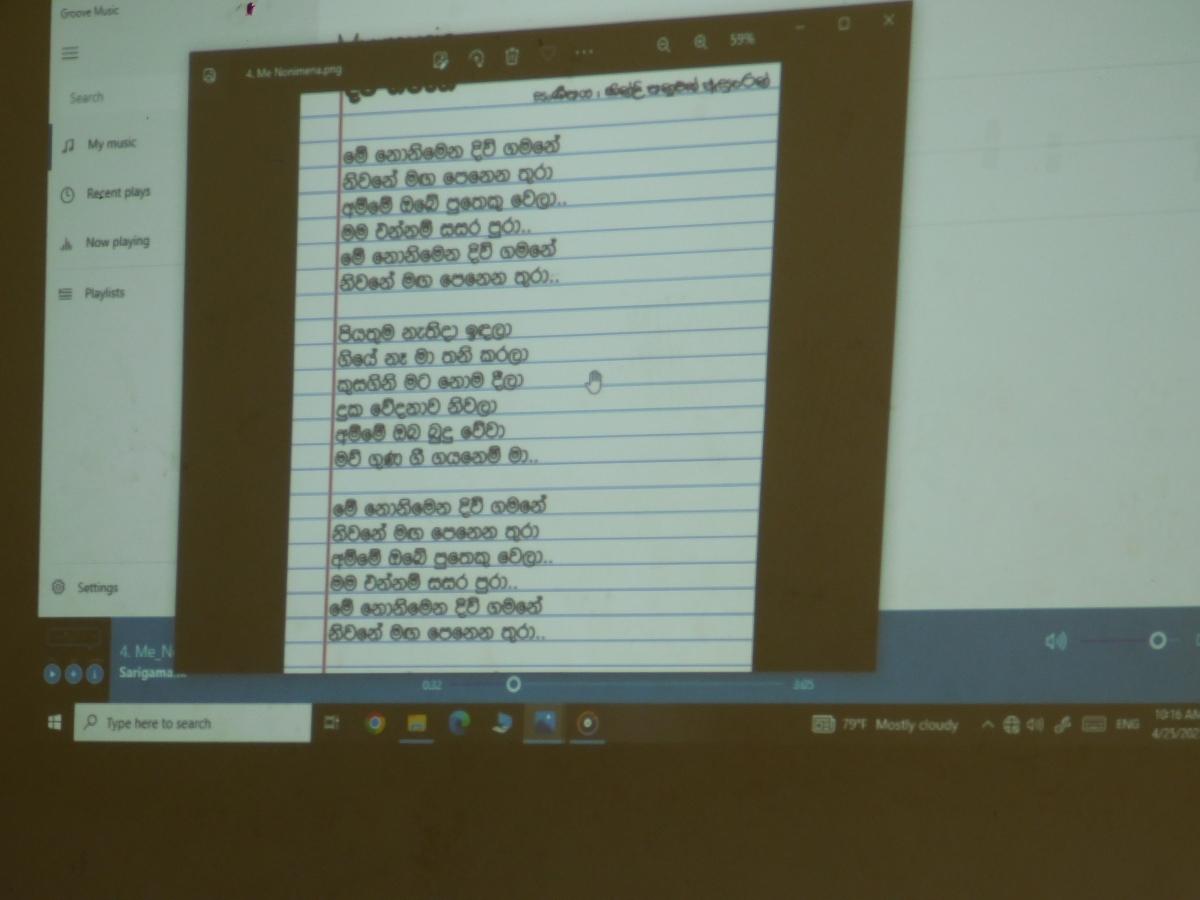 Groove Music
4. Me Nonimena.png
59%
Search
My music
Recent plays
Now playing
Playlists
Settings
සංගීතය :
මේ නොනිමෙන දිවි ගමනේ
නිවනේ මඟ පෙනෙන තුරා
අම්මේ ඔබේ පුතෙකු වෙලා..
මම එන්නම් සසර පුරා..
මේ නොනිමෙන දිවි ගමනේ
නිවනේ මඟ පෙනෙන තුරා..
පියතුම නැතිදා ඉඳලා
ගියේ නෑ මා තනි කරලා
කුසගිනි මට නොම දීලා
දුක වේදනාව නිවලා
අම්මේ ඔබ බුදු වේවා
මව් ගුණ ගී ගයනෙමි මා..
මේ නොනිමෙන දිවි ගමනේ
නිවනේ මඟ පෙනෙන තුරා
අම්මේ ඔබේ පුතෙකු වෙලා..
මම එන්නම් සසර පුරා..
මේ නොනිමෙන දිවි ගමනේ
නිවනේ මඟ පෙනෙන තුරා..
4. Me_N
Sarigama...
0:32
3:05
Type here to search
79°F Mostly cloudy
ENG
10:16 AM
4/25/202